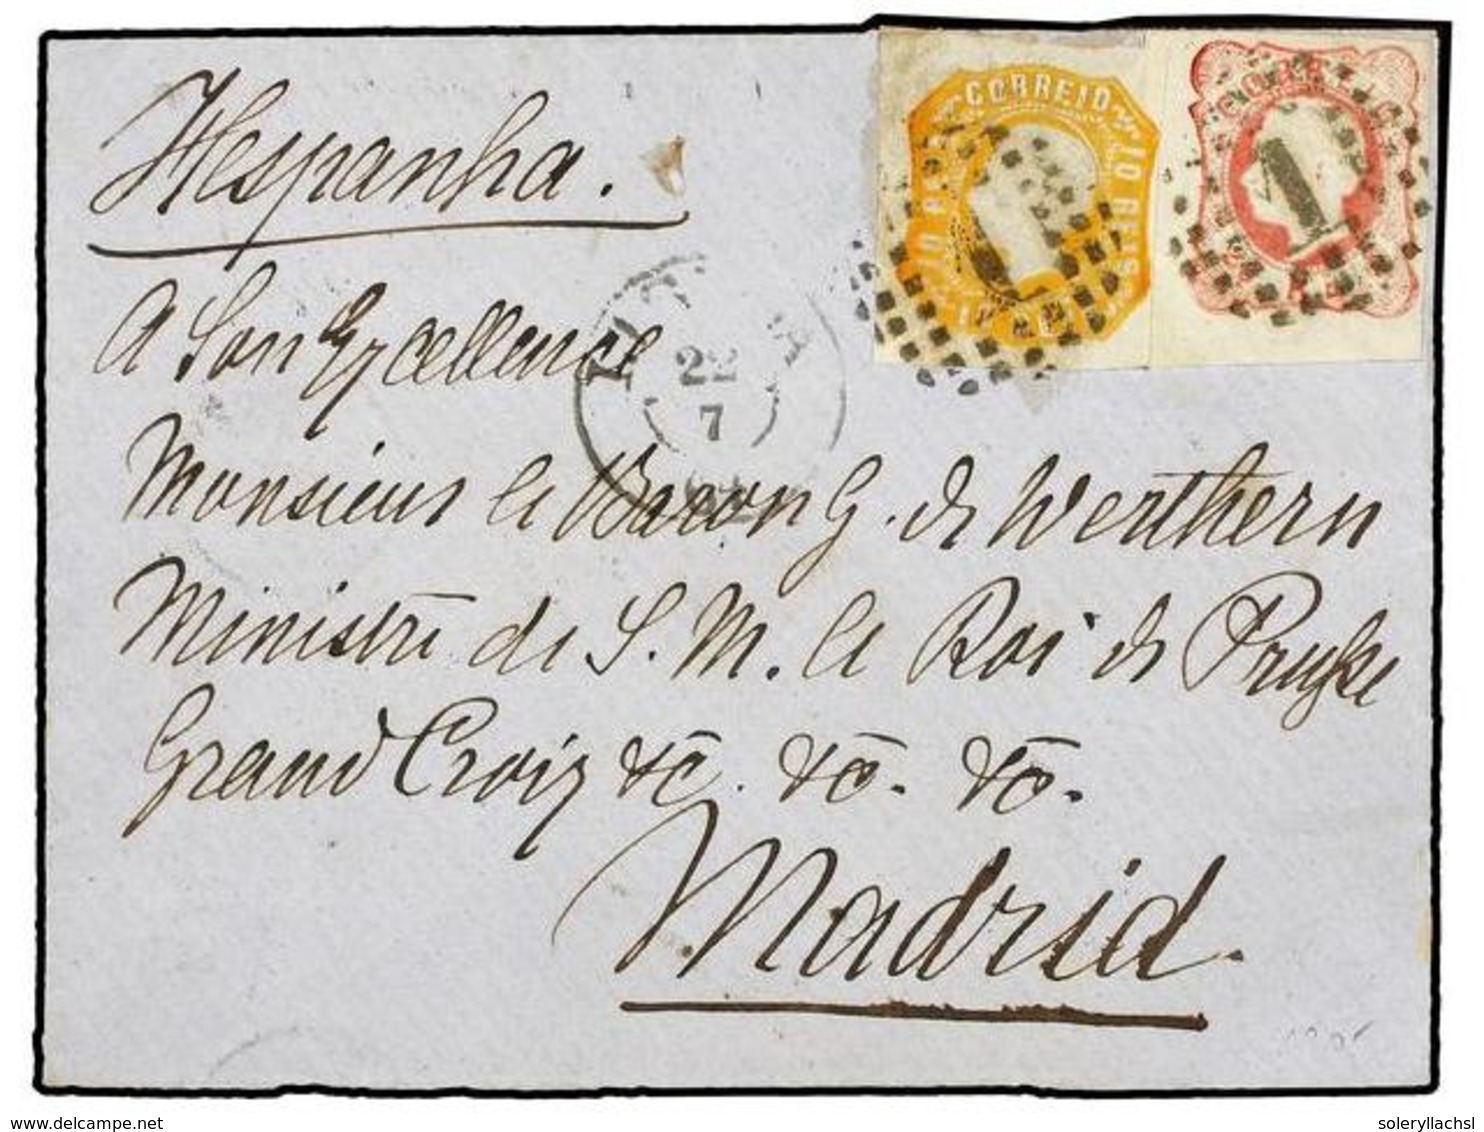 CORREIO
10 REIS
Hespanha.
A Son Excellence
22
7
Monsieur le Baron G. de Werthern
Ministre de S. M. le Roi de Prusse
Grand Croix &c. &c. &c.
Madrid.
1
delcampe.net
soleryllachsl